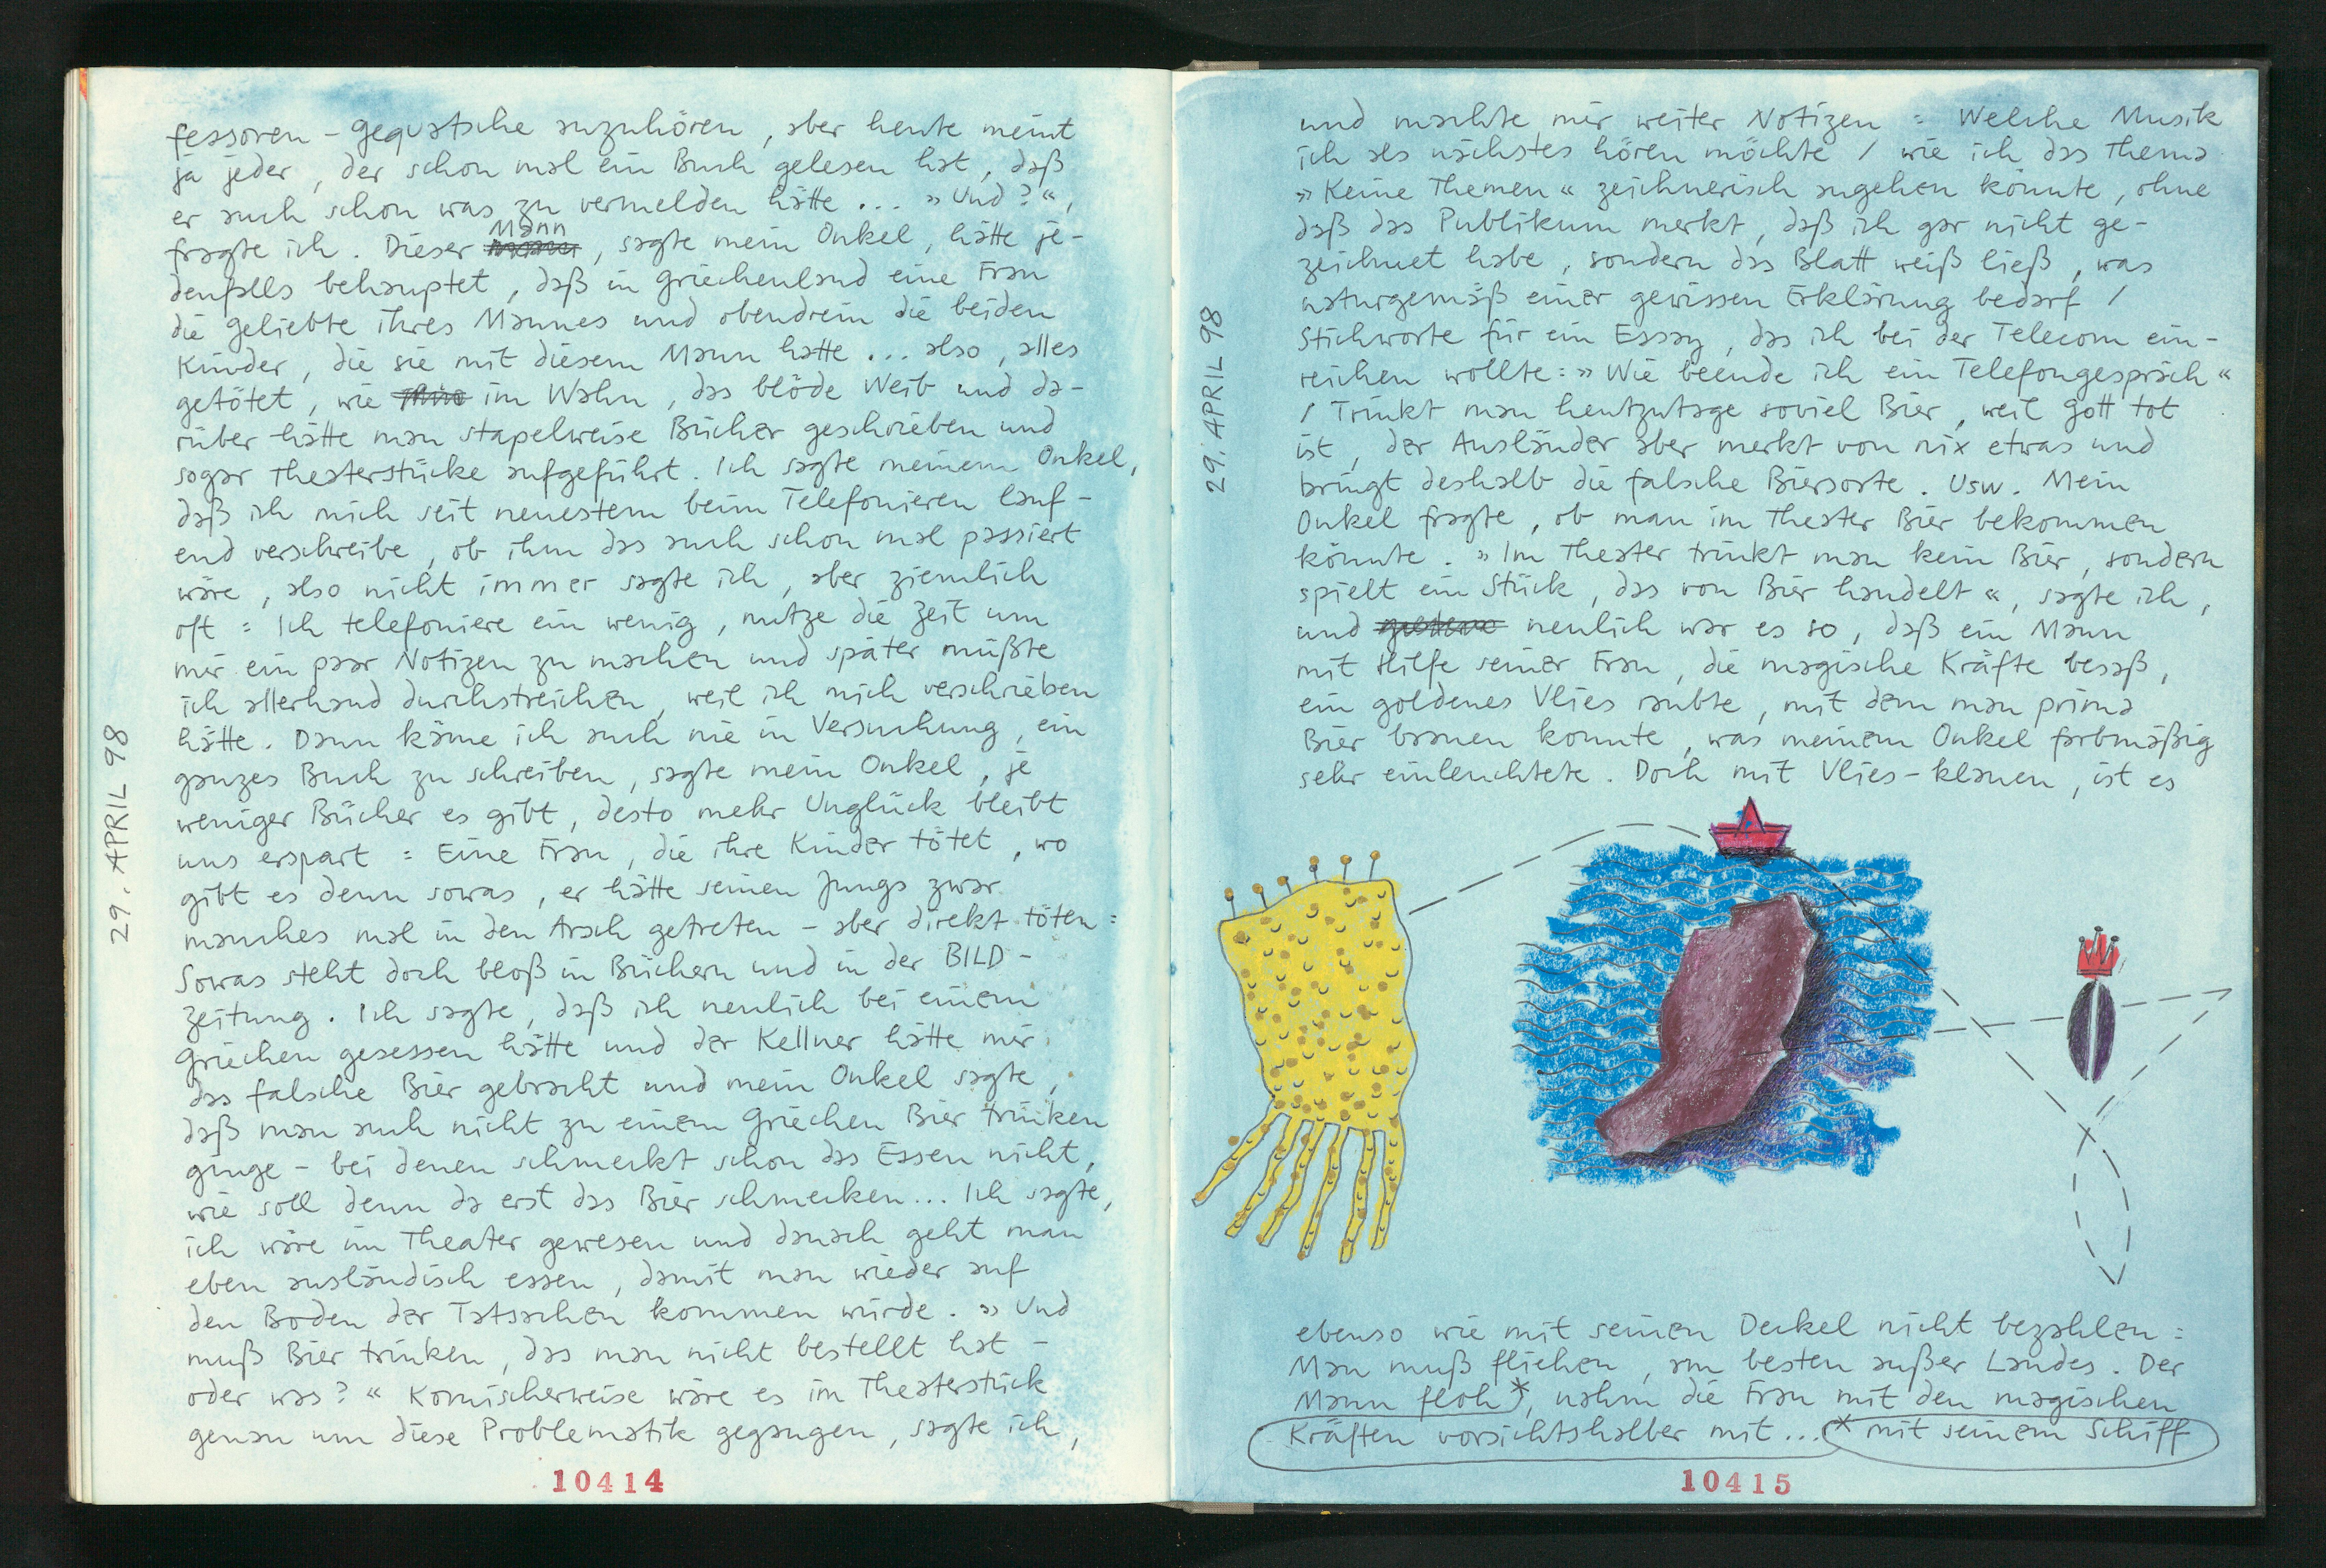 fessoren - Gequatsche anzuhören, aber heute meint
ja jeder, der schon mal ein Buch gelesen hat, daß
er auch schon was zu vermelden hätte ... »Und?«,
fragte ich. Dieser Mann, sagte mein Onkel, hätte je-
denfalls behauptet, daß in Griechenland eine Frau
die Geliebte ihres Mannes und obendrein die beiden
Kinder, die sie mit diesem Mann hatte ... also, alles
getötet, wie im Wahn, das blöde Weib und da-
rüber hätte man stapelweise Bücher geschrieben und
sogar Theaterstücke aufgeführt. Ich sagte meinem Onkel,
daß ich mich seit neuestem beim Telefonieren lauf-
end verschreibe, ob ihm das auch schon mal passiert
wäre, also nicht immer sagte ich, aber ziemlich
oft : Ich telefoniere ein wenig, nutze die Zeit um
mir ein paar Notizen zu machen und später müßte
ich allerhand durchstreichen, weil ich mich verschrieben
hätte. Dann käme ich auch nie in Versuchung, ein
ganzes Buch zu schreiben, sagte mein Onkel, je
weniger Bücher es gibt, desto mehr Unglück bleibt
uns erspart : Eine Frau, die ihre Kinder tötet, wo
gibt es denn sowas, er hätte seinen Jungs zwar
manches mal in den Arsch getreten - aber direkt töten :
Sowas steht doch bloß in Büchern und in der BILD-
Zeitung. Ich sagte, daß ich neulich bei einem
Griechen gesessen hätte und der Kellner hätte mir
das falsche Bier gebracht und mein Onkel sagte,
daß man auch nicht zu einem Griechen Bier trinken
ginge - bei denen schmeckt schon das Essen nicht,
wie soll denn da erst das Bier schmecken... Ich sagte,
ich wäre im Theater gewesen und danach geht man
eben ausländisch essen, damit man wieder auf
den Boden der Tatsachen kommen würde. »Und
muß Bier trinken, das man nicht bestellt hat -
oder was?« Komischerweise wäre es im Theaterstück
genau um diese Problematik gegangen, sagte ich,
29. APRIL 98
10414
und machte mir weiter Notizen : Welche Musik
ich als nächstes hören möchte / wie ich das Thema
»Keine Themen« zeichnerisch angehen könnte, ohne
daß das Publikum merkt, daß ich gar nicht ge-
zeichnet habe, sondern das Blatt weiß ließ, was
naturgemäß einer gewissen Erklärung bedarf /
Stichworte für ein Essay, das ich bei der Telecom ein-
reichen wollte: »Wie beende ich ein Telefongespräch«
/ Trinkt man heutzutage soviel Bier, weil Gott tot
ist, der Ausländer aber merkt von nix etwas und
bringt deshalb die falsche Biersorte. Usw. Mein
Onkel fragte, ob man im Theater Bier bekommen
könnte. »Im Theater trinkt man kein Bier, sondern
spielt ein Stück, das von Bier handelt«, sagte ich,
und neulich war es so, daß ein Mann
mit Hilfe seiner Frau, die magische Kräfte besaß,
ein goldenes Vlies raubte, mit dem man prima
Bier brauen konnte, was meinem Onkel farbmäßig
sehr einleuchtete. Doch mit Vlies-klauen, ist es
ebenso wie mit seinen Deckel nicht bezahlen :
Man muß fliehen, am besten außer Landes. Der
Mann floh*, nahm die Frau mit den magischen
Kräften vorsichtshalber mit... * mit seinem Schiff
29. APRIL 98
10415